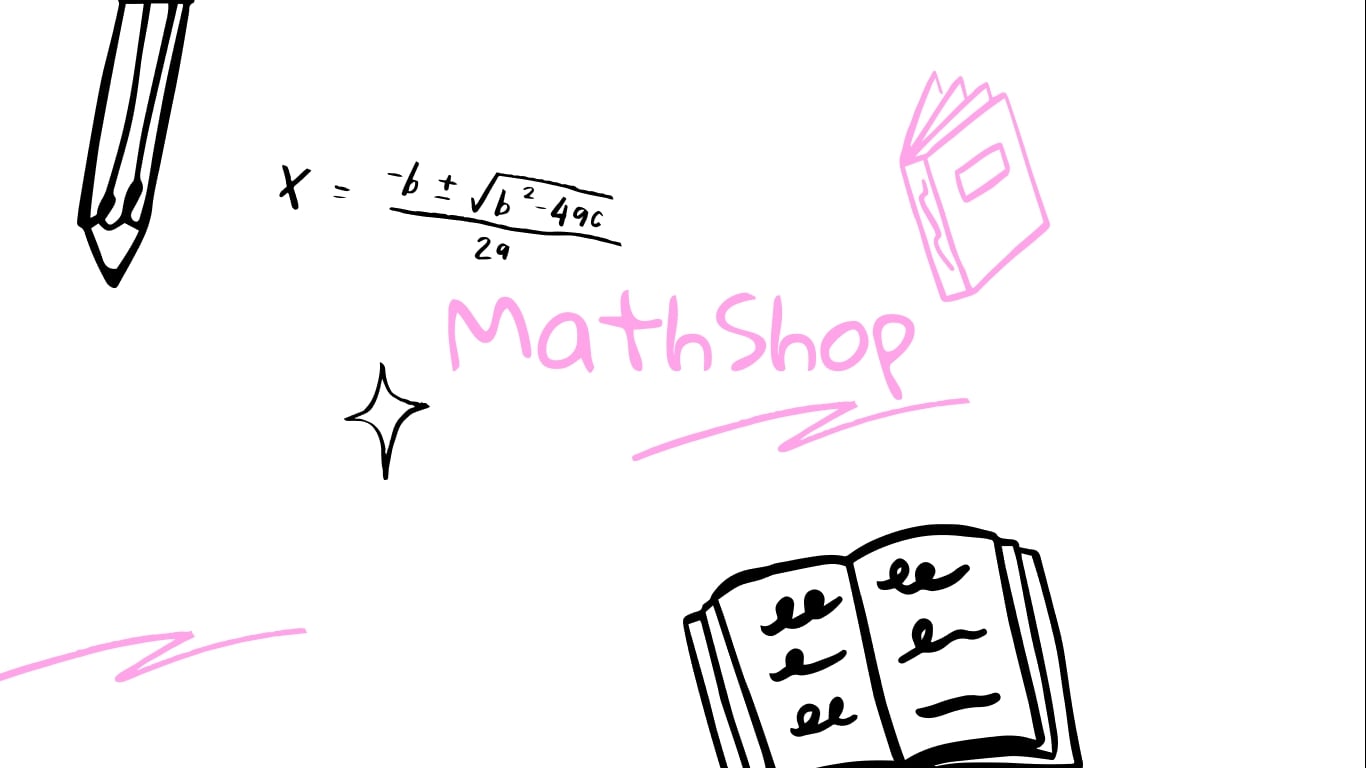 X = -b ± √b²-4ac
2a
MathShop